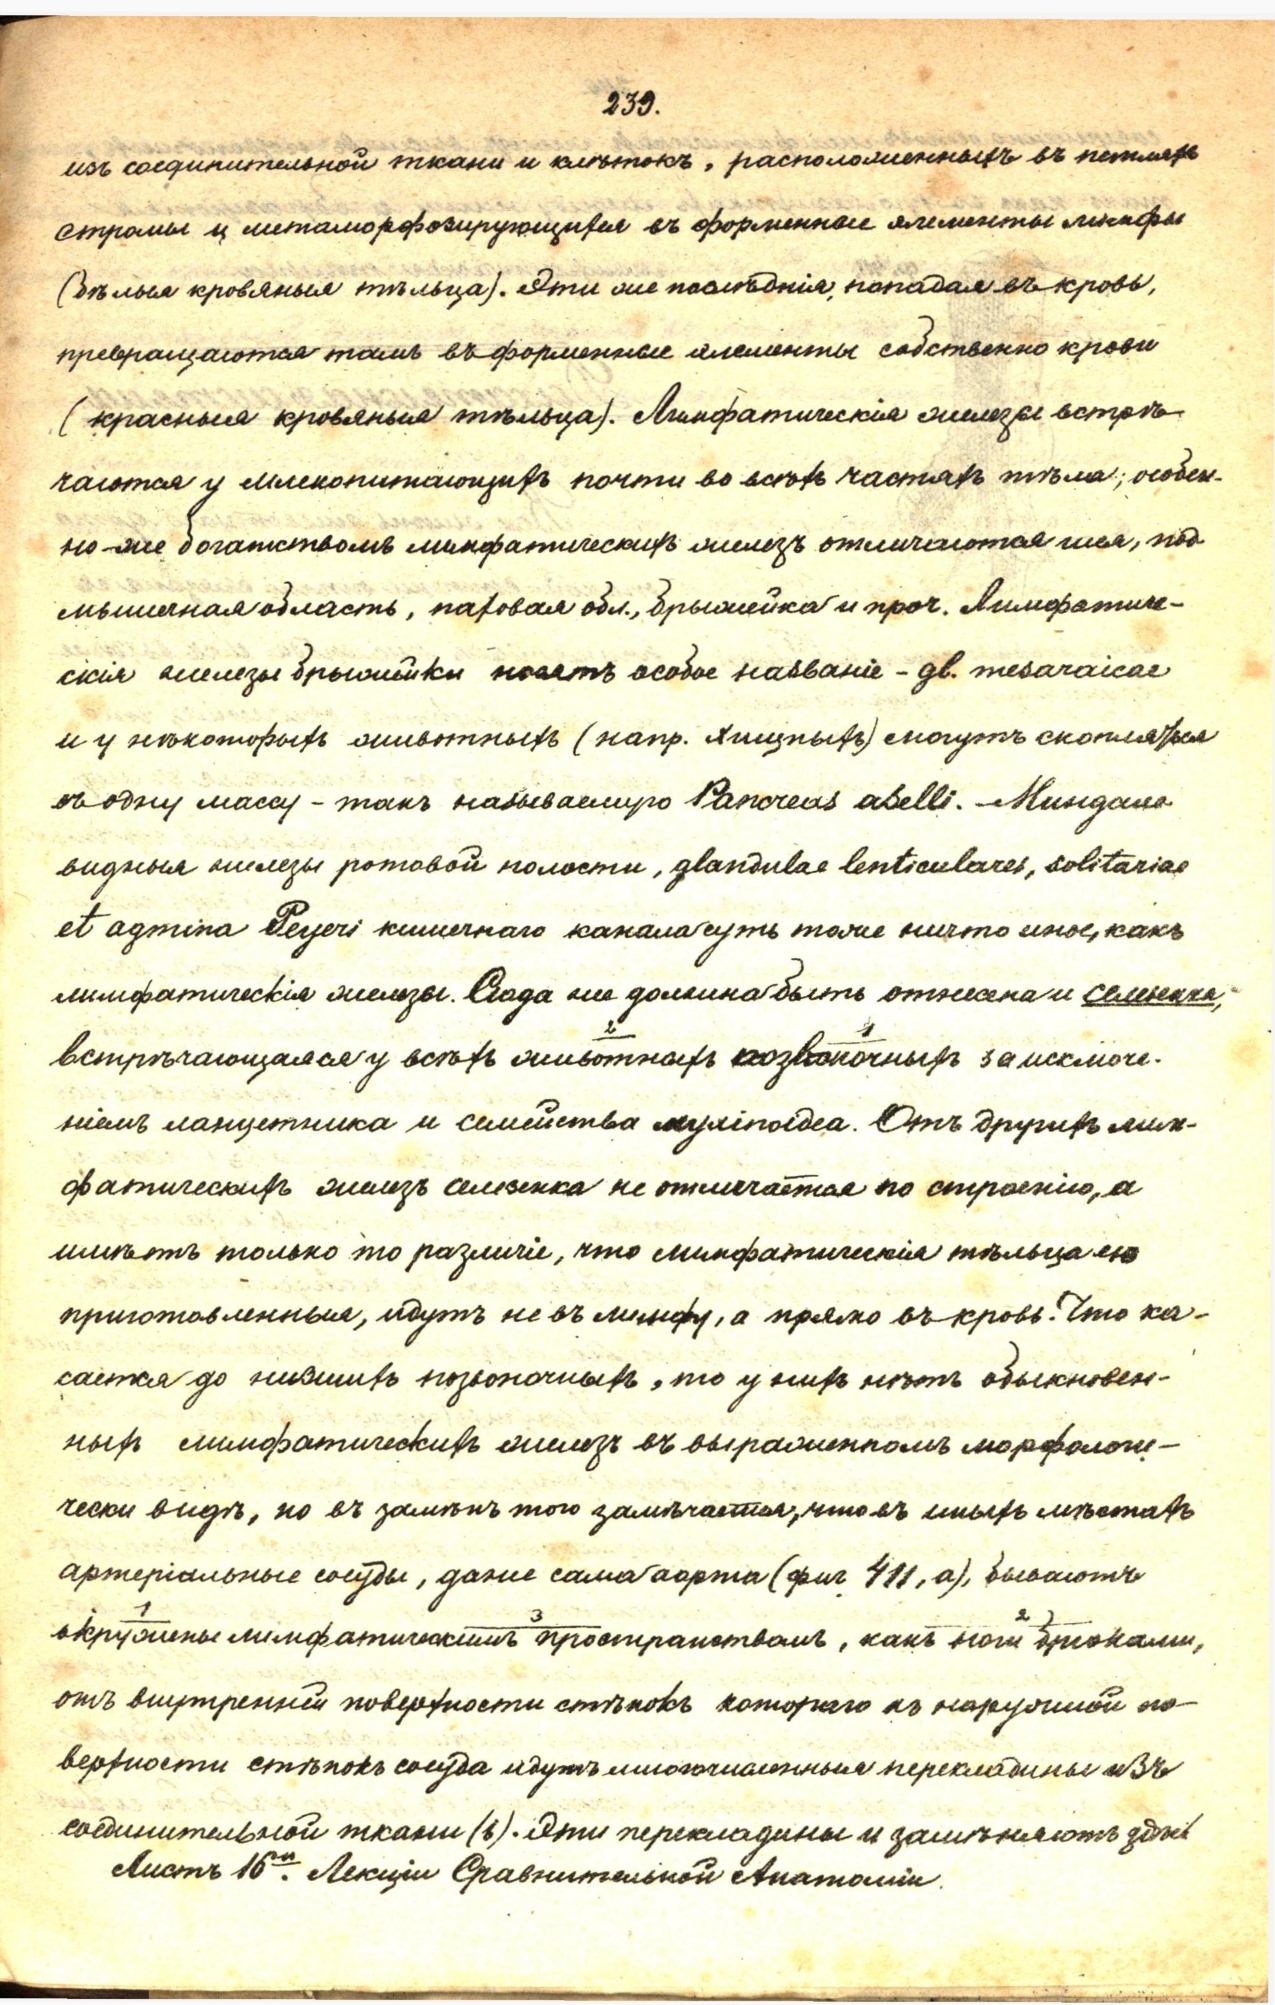 239.
изъ соединительной ткани и клѣтокъ, расположенныхъ въ петляхъ
стромы и метаморфозирующихся въ форменные элементы лимфы
(бѣлыя кровяныя тѣльца). Эти же послѣднія, попадая въ кровь,
превращаются тамъ въ форменные элементы собственно крови
(красныя кровяныя тѣльца). Лимфатическія железы встрѣ-
чаются у млекопитающихъ почти во всѣхъ частяхъ тѣла; особен-
но-же богатствомъ лимфатическихъ железъ отличаются шея, под-
мышечная область, паховая обл., брыжейка и проч. Лимфатиче-
скія железы брыжейки носятъ особое названіе - gl. mesaraicae
и у нѣкоторыхъ животныхъ (напр. хищныхъ) могутъ скопляться
въ одну массу - такъ называемую Pancreas aselli. - Миндале-
видныя железы ротовой полости, glandulae lenticulares, solitariae
et agmina Peyeri кишечнаго канала суть тоже ничто иное, какъ
лимфатическія железы. Сюда же должна быть отнесена и селезенка,
встрѣчающаяся у всѣхъ животныхъ 2 позвоночныхъ 1 за исключе-
ніемъ ланцетника и семейства myxinoidea. Отъ другихъ лим-
фатическихъ железъ селезенка не отличается по строенію, а
имѣетъ только то различіе, что лимфатическія тѣльца ею
приготовленныя, идутъ не въ лимфу, а прямо въ кровь. Что ка-
сается до низшихъ позвоночныхъ, то у нихъ нѣтъ обыкновен-
ныхъ лимфатическихъ железъ въ выраженномъ морфологи-
чески видѣ, но въ замѣнъ того замѣчается, что въ иныхъ мѣстахъ
артеріальные сосуды, даже сама аорта (фиг. 411, a), бываютъ
окружены 1 лимфатическимъ пространствомъ 3, какъ ноги брюками 2,
отъ внутренней поверхности стѣнокъ котораго къ наружной по-
верхности стѣнокъ сосуда идутъ многочисленныя перекладины изъ
соединительной ткани (b). Эти перекладины и замѣняютъ здѣсь
Листъ 16й. Лекціи Сравнительной Анатоміи.